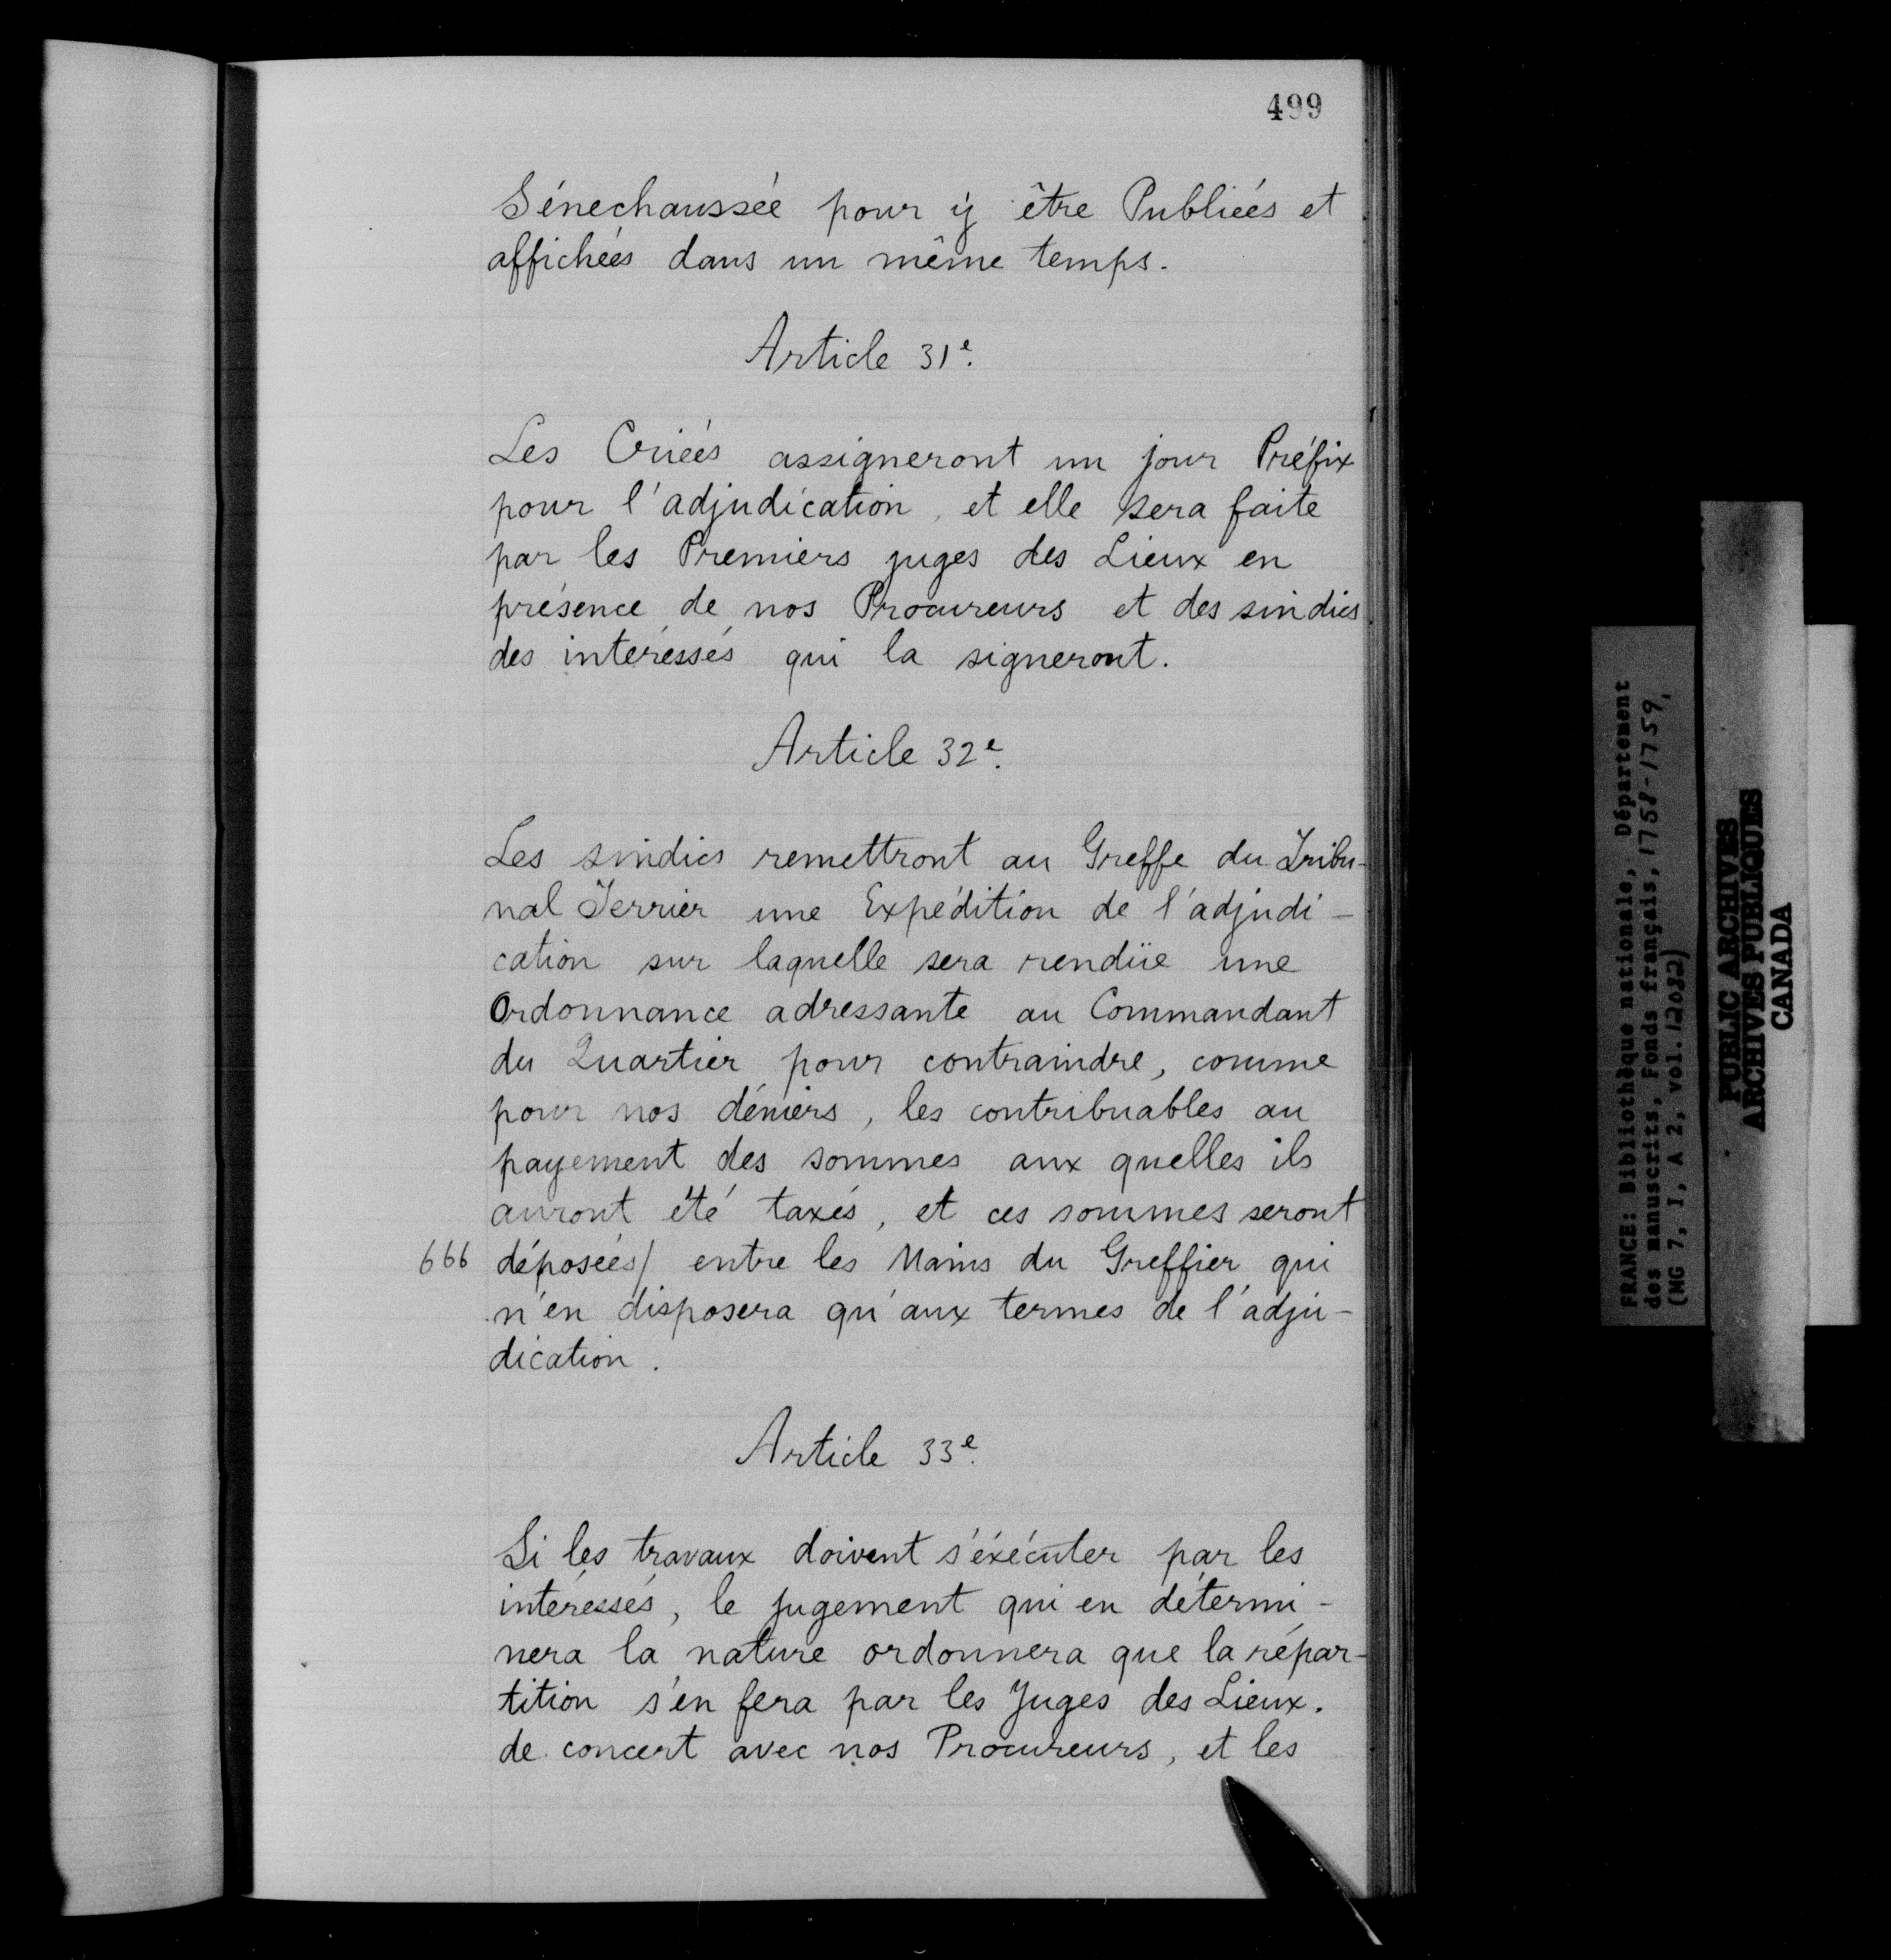 499
Sénechaussée pour ÿ être Publiées et
affichées dans un même temps.
Article 31e.
Les Criées assigneront un jour Préfix
pour l'adjudication, et elle sera faite
par les Premiers juges des Lieux en
présence de nos Procureurs et des sindics
des intéressés qui la signeront.
Article 32e.
Les sindics remettront au Greffe du Tribu-
nal Terrier une Expédition de l'adjudi-
cation sur laquelle sera rendüe une
Ordonnance adressante au Commandant
du Quartier pour contraindre, comme
pour nos déniers, les contribuables au
payement des sommes aux quelles ils
auront été taxés, et ces sommes seront
666 déposées/ entre les Mains du Greffier qui
n'en disposera qu'aux termes de l'adju-
dication.
Article 33e.
Si les travaux doivent s'éxécuter par les
intéressés, le jugement qui en détermi-
nera la nature ordonnera que la répar-
tition s'en fera par les Juges des Lieux.
de concert avec nos Procureurs, et les
FRANCE: Bibliothèque nationale, Département
des manuscrits, Fonds français, 1758-1759,
(MG 7, I, A 2, vol. 12082)
PUBLIC ARCHIVES
ARCHIVES PUBLIQUES
CANADA